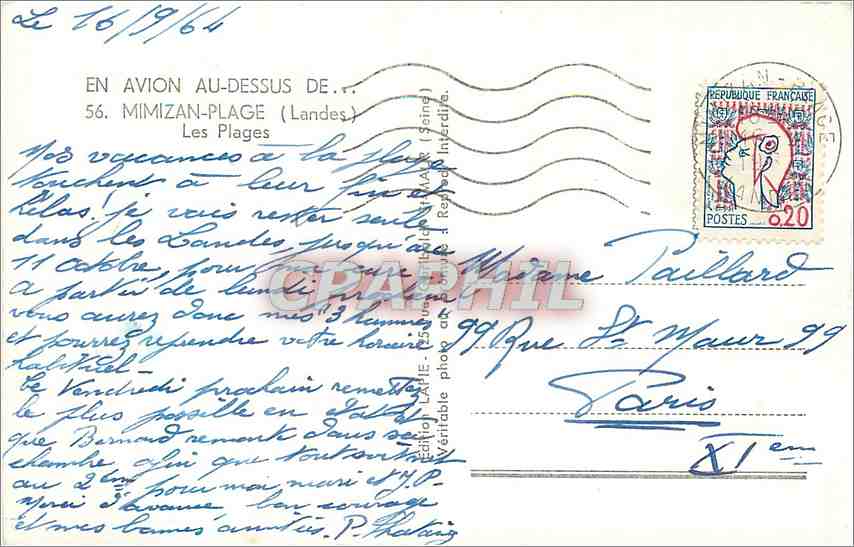 Le 16/9/64
EN AVION AU-DESSUS DE...
56. MIMIZAN-PLAGE (Landes)
Les Plages
Nos vacances à la plage
touchent à leur fin et
hélas! je vais rester seule
dans les Landes jusqu'au
11 octobre, pour ma cure
a partir de lundi prochain
vous aurez donc mes "3 hommes"
et pourrez reprendre votre horaire
habituel -
Le Vendredi prochain remettez
le plus possible en état et
que Bernard remonte dans sa
chambre afin que tout soit net
au 2ème pour mon mari et J.P.
Merci d'avance, bon courage
et mes bonnes amitiés. P.
Edition LAPIE - St-MAUR (Seine)
Véritable photo au - Reprod. Interdite.
CPAPHIL
REPUBLIQUE FRANÇAISE
POSTES 0,20
Madame Paillard
99 Rue St Maur 99
Paris
XIem